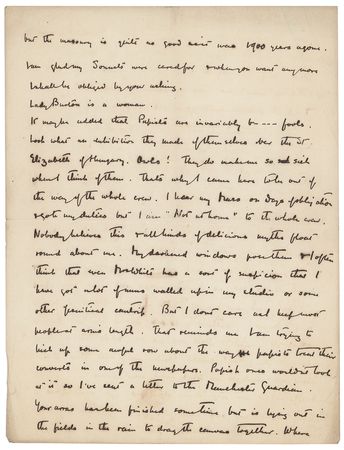 but the masonry is quite as good as it was 1900 years agone.
I am glad my Sonnets were cared for & when you want any more
I shall be obliged by your asking.
Lady Burton is a woman.
It may be added that Papists are invariably b---- fools.
Look what an exhibition they made of themselves over the St.
Elizabeth of Hungary. Owls! They do make me so sick
when I think of them. That's why I came here to be out of
the way of the whole crew. I hear my Mass on Days of obligation
& go to my duties but I am "Not at home" to the whole crew.
Nobody believes this & all kinds of delicious myths float
round about me. My darkened windows puzzle them & I often
think that even has a sort of suspicion that I
have got a lot of nuns walled up in my studio or some
other Jesuitical contrip. But I don't care and keep most
people at arms length. That reminds me I am trying to
kick up some awful row about the way papists treat their
converts in one of the newspapers. Papist ones wouldn't look
at it so I've sent a letter to the Manchester Guardian.
Your arras has been finished some time but is lying out in
the fields in the rain to drag the canvas together. Where